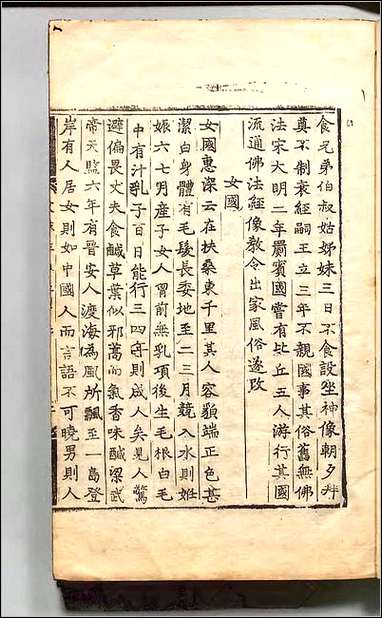 食兄弟伯叔姑姊妹三日不食設坐神像朝夕拜
奠不制衰絰嗣王立三年不親國事其俗舊無佛
法宋大明二年罽賓國嘗有比丘五人游行其國
流通佛法經像教令出家風俗遂改
女國
女國惠深云在扶桑東千里其人容貌端正色甚
潔白身體有毛髮長委地至二三月競入水則姙
娠六七月産子女人胷前無乳項後生毛根白毛
中有汁乳子百日能行三四年則成人矣見人驚
避偏畏丈夫食鹹草葉似邪蒿而氣香味鹹梁武
帝天監六年有晉安人渡海為風所飄至一島登
岸有人居女則如中國人而言語不可曉男則人